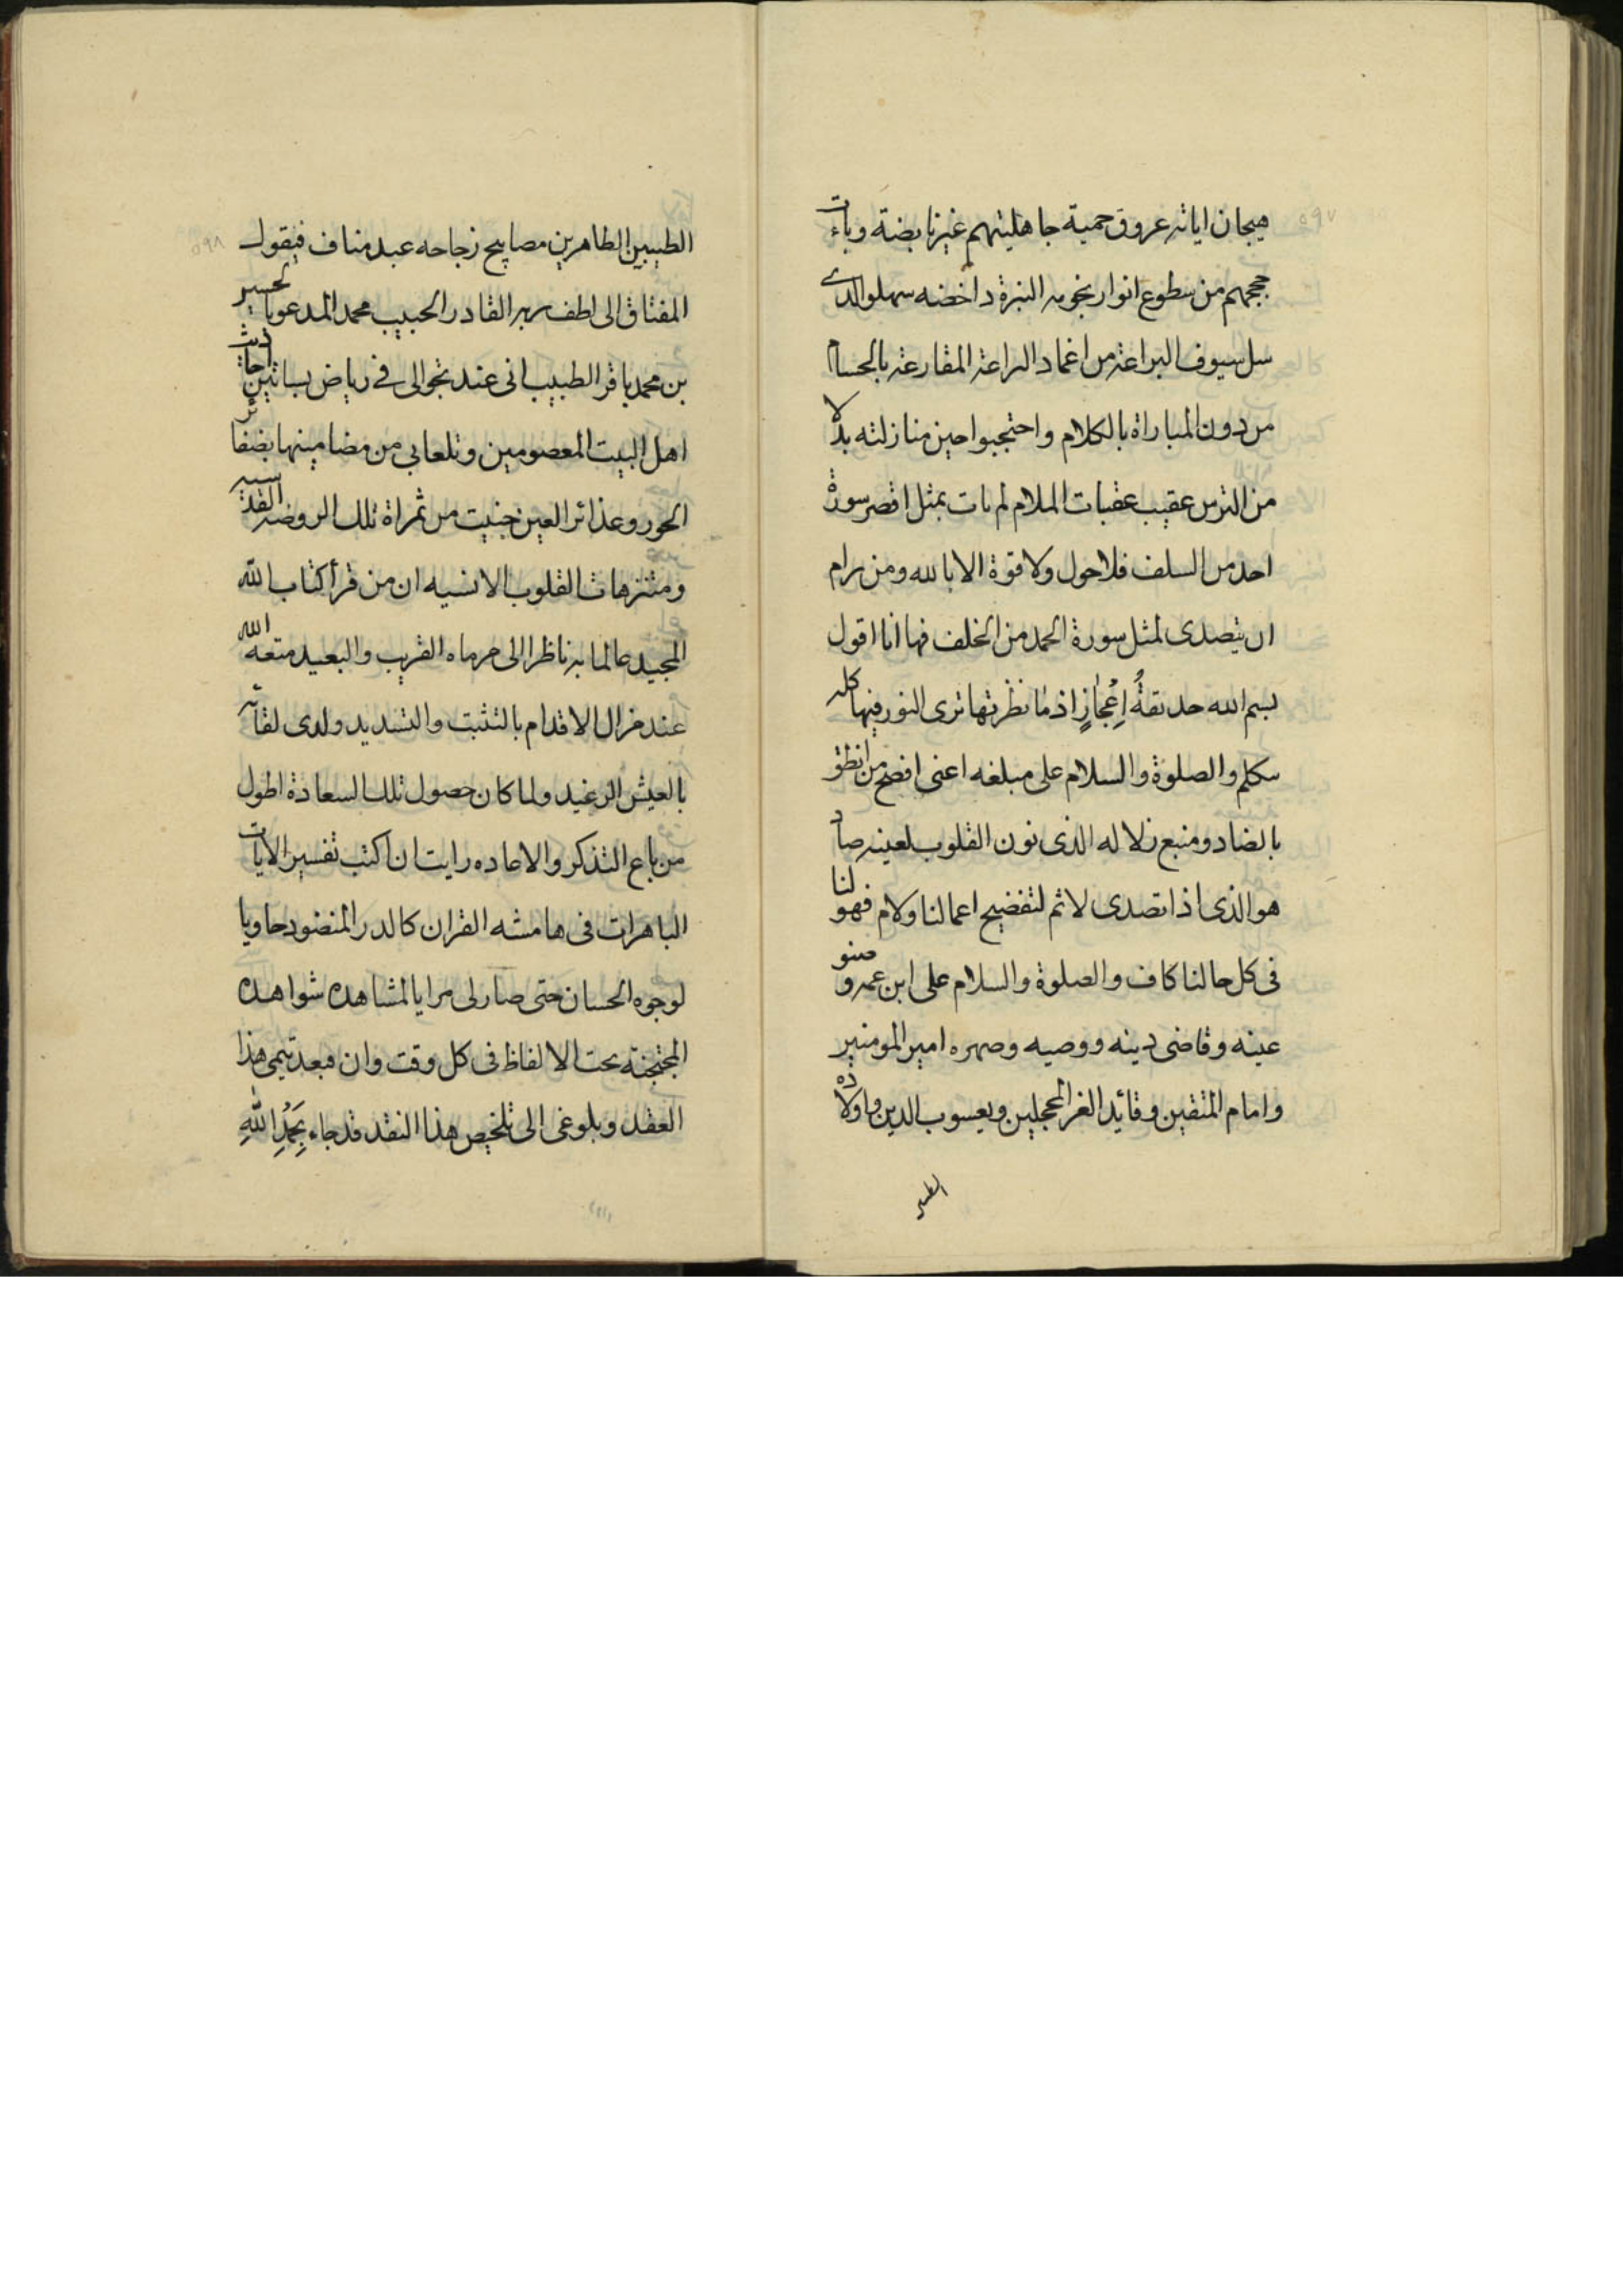 ٥٩٧
هيجان اياته عروق حمية جاهليتهم غير نابضة وباءت
حججهم من سطوع انوار نجومه النيرة داخضه سهلو الدى
سل سيوف البراعة من اغماد البراعة المقارعة بالحسام
من دون المباراة بالكلام واحتجبوا حين منازلته بدلا
من الترس عقيب عقبات الملام لم يات بمثل اقصر سورة
احد من السلف فلا حول ولا قوة الا بالله ومن يرام
ان يتصدى لمثل سورة الحمد من الخلف فها انا اقول
بسم الله حديقةُ اِعْجٰازٍ اذ مٰا نظرتها ترى النور فيها كله
سكلم والصلوة والسلام على مبلغه اعنى افصح من انطق
بالضاد ومنبع زلاله الذى نون القلوب لعينه صاد
هو الذى اذا تصدى لائم لتفضيح اعمالنا ولام فهو لنا
فى كل حالنا كاف والصلوة والسلام على ابن عمه و صنو
عينه وقاضى دينه ووصيه وصهره امير المومنين
وامام المتقين وقائد الغر المحجلين ويعسوب الدين واولاده
الطيبين
٥٩٨
الطيبين الطاهرين مصابيح زجاجه عبد مناف فيقول
المفتاق الى لطف ربه القادر الحبيب محمد المدعو بالحسين
بن محمد باقر الطبيب انى عند تجوالى فى رياض بساتين احاديث
اهل البيت المعصومين وتلعابى من مضامينها بضفائر
الحور وغذائر العين جنيت من ثمراة تلك الروضه القدسيه
ومتنزهات القلوب الانسيه ان من قرأ كتاب الله
المجيد عالما به ناظرا الى مرماه القريب والبعيد متعه الله
عند مزال الاقدام بالتثبت والتسديد ولدى لقائه
بالعيش الرغيد ولما كان حصول تلك السعادة اطول
من باع التذكر والاعاده رايت ان اكتب تفسير الايات
الباهرات فى هامشه القران كالدر المنضود حاويا
لوجوه الحسان حتى صار لى مرايا لمشاهده شواهده
المجتجنة تحت الالفاظ فى كل وقت وان فبعد تيمى هذا
العقد وبلوغى الى تلخيص هذا النقد قد جاء بِحَمْدِ اللّٰهِ